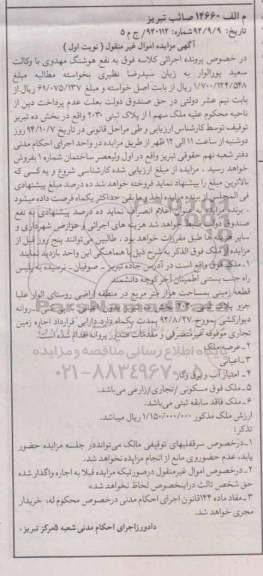 م الف ۱۴۶۶۰ صائب تبریز
تاریخ: ۹۴/۹/۹ شماره: ۹۴۰۱۱۲/ ج م ۵
آگهی مزایده اموال غیر منقول ( نوبت اول )
در خصوص پرونده اجرائی کلاسه فوق به نفع هوشنگ مهدوی با وکالت
سعید پورالوار به زیان سیدرضا نظیری بخواسته مطالبه مبلغ
۱/۷۰۰/۱۲۴/۵۴۸ ریال از بابت اصل خواسته و مبلغ ۶۹/۰۷۵/۱۳۷ ریال از
بابت نیم عشر دولتی در حق صندوق دولت بعلت عدم پرداخت دین از
ناحیه محکوم علیه ملک سهم از پلاک ثبتی ۲۰۳۰ واقع در بخش ده تبریز
توقیف توسط کارشناس ارزیابی و طی مراحل قانونی در تاریخ ۹۴/۱۰/۷ روز
دوشنبه از ساعت ۱۱ الی ۱۲ ظهر از طریق مزایده در واحد اجرای احکام مدنی
دفتر شعبه نهم حقوقی تبریز واقع در اول ولیعصر ساختمان شماره ۱ بفروش
خواهد رسید . مزایده از مبلغ ارزیابی شده کارشناس شروع و به کسی که
بالاترین مبلغ را پیشنهاد نماید فروخته خواهد شد ده درصد مبلغ پیشنهادی
فی المجلس از برنده مزایده اخذ و مابقی حداکثر یکماه فرصت داده میشود
. برنده مزایده اعلام انصراف نماید ده درصد پیشنهادی به نفع
صندوق دولت ضبط خواهد شد هزینه های اجرائی و عوارض شهرداری و
سایر هزینه ها طبق مقررات خواهد بود . طالبین می‌توانند پنج روز قبل از
مزایده از ملک فوق الذکر به شرح ذیل با هماهنگی این واحد بازدید نمایند
۱ـ ملک فوق واقع است در آدرس جاده تبریز ـ صوفیان ـ نرسیده به پلیس
راه جنب
قطعه زمینی بمساحت هزار متر مربع در منطقه اراضی روستای الوار علیا
جزو پلاک
دیوارکشی بمورخ ۹۲/۸/۲۷ بمدت یکماه دارد. دارای قرارداد اجاره زمین
تجاری موقوفه
۲ـ عرصه ملک
۳ـ اعیانی
۴ـ امتیاز آب و برق و گاز
۵ـ ملک فوق مسکونی / تجاری/زراعی می‌باشد.
۶ـ ملک فاقد سابقه ثبتی می‌باشد.
ارزش ملک مذکور ۱/۱۵۰/۰۰۰/۰۰۰ ریال میباشد.
تذکر :
۱ـ درخصوص سرقفلیهای توقیفی مالک می‌تواند در جلسه مزایده حضور
یابد، عدم حضور وی مانع از انجام مزایده نخواهد شد.
۲ـ درخصوص اموال غیرمنقول درصورتیکه مزایده قبلا به اجاره واگذار شده
حق شخص ثالث دراینخصوص لحاظ نخواهد شد.
۳ـ مفاد ماده ۱۴۴ قانون اجرای احکام مدنی درخصوص محکوم له، خریدار
مجری خواهد شد.
دادورز اجرای احکام مدنی شعبه ۵ مرکز تبریز .
پایگاه اطلاع رسانی مناقصه و مزایده
۰۲۱-۸۸۳۴۹۶۷۰